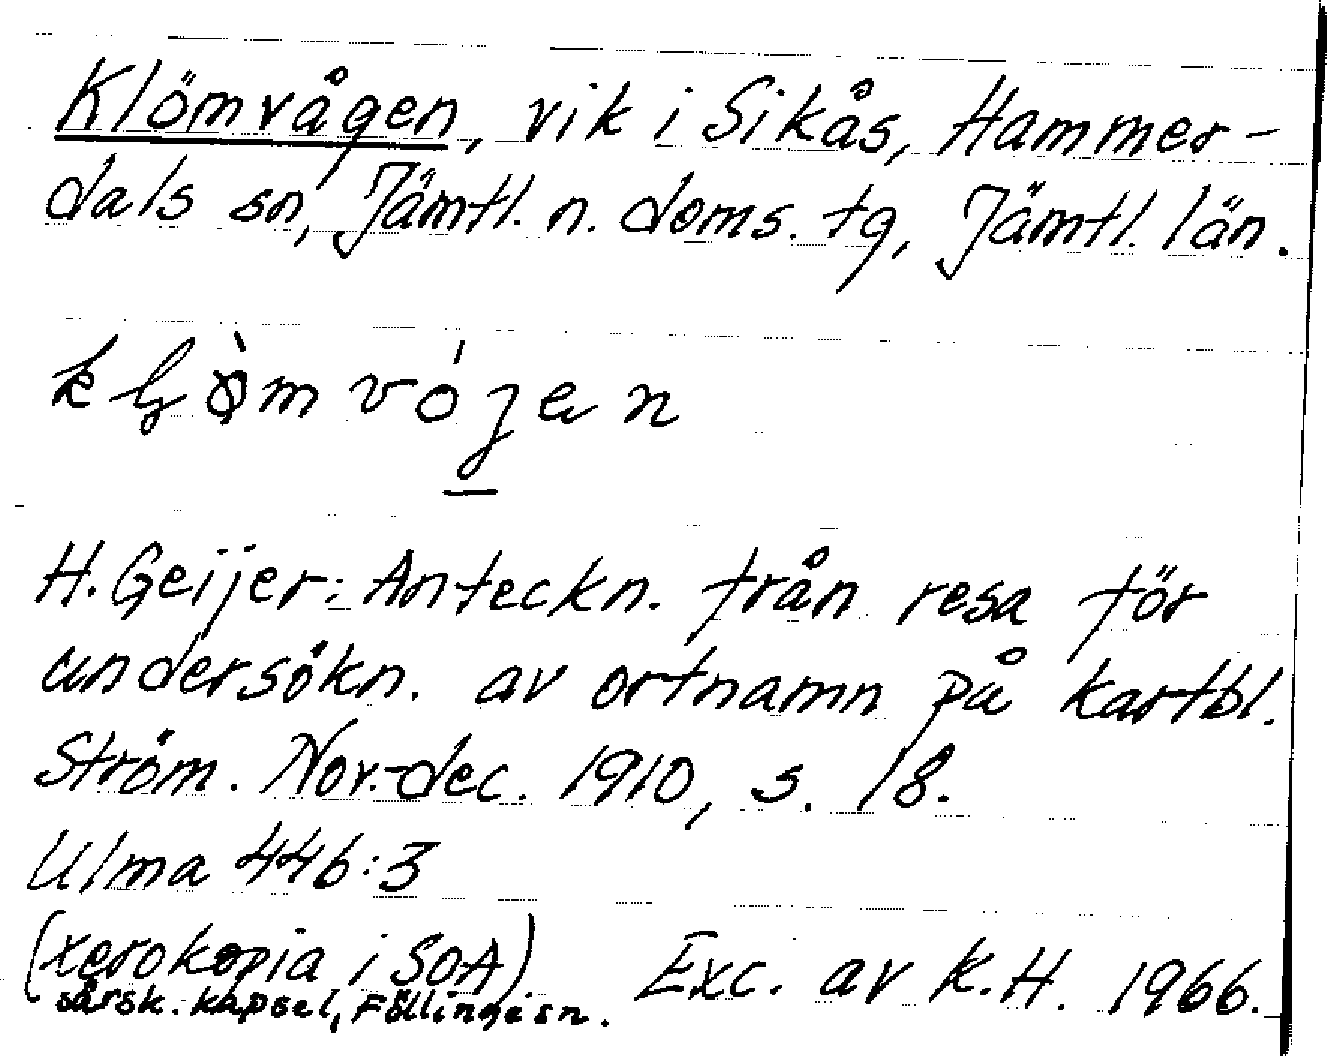 Klömvågen, vik i Sikås, Hammer-
dals sn, Jämtl. n. doms. tg, Jämtl. län.
H. Geijer: Anteckn. från resa för
undersökn. av ortnamn på kartbl.
Ström. Nov.-dec. 1910, s. 18.
Ulma 446:3
(xerokopia i SOA) Exc. av K.H. 1966.
särsk. kapsel, Föllinge sn.